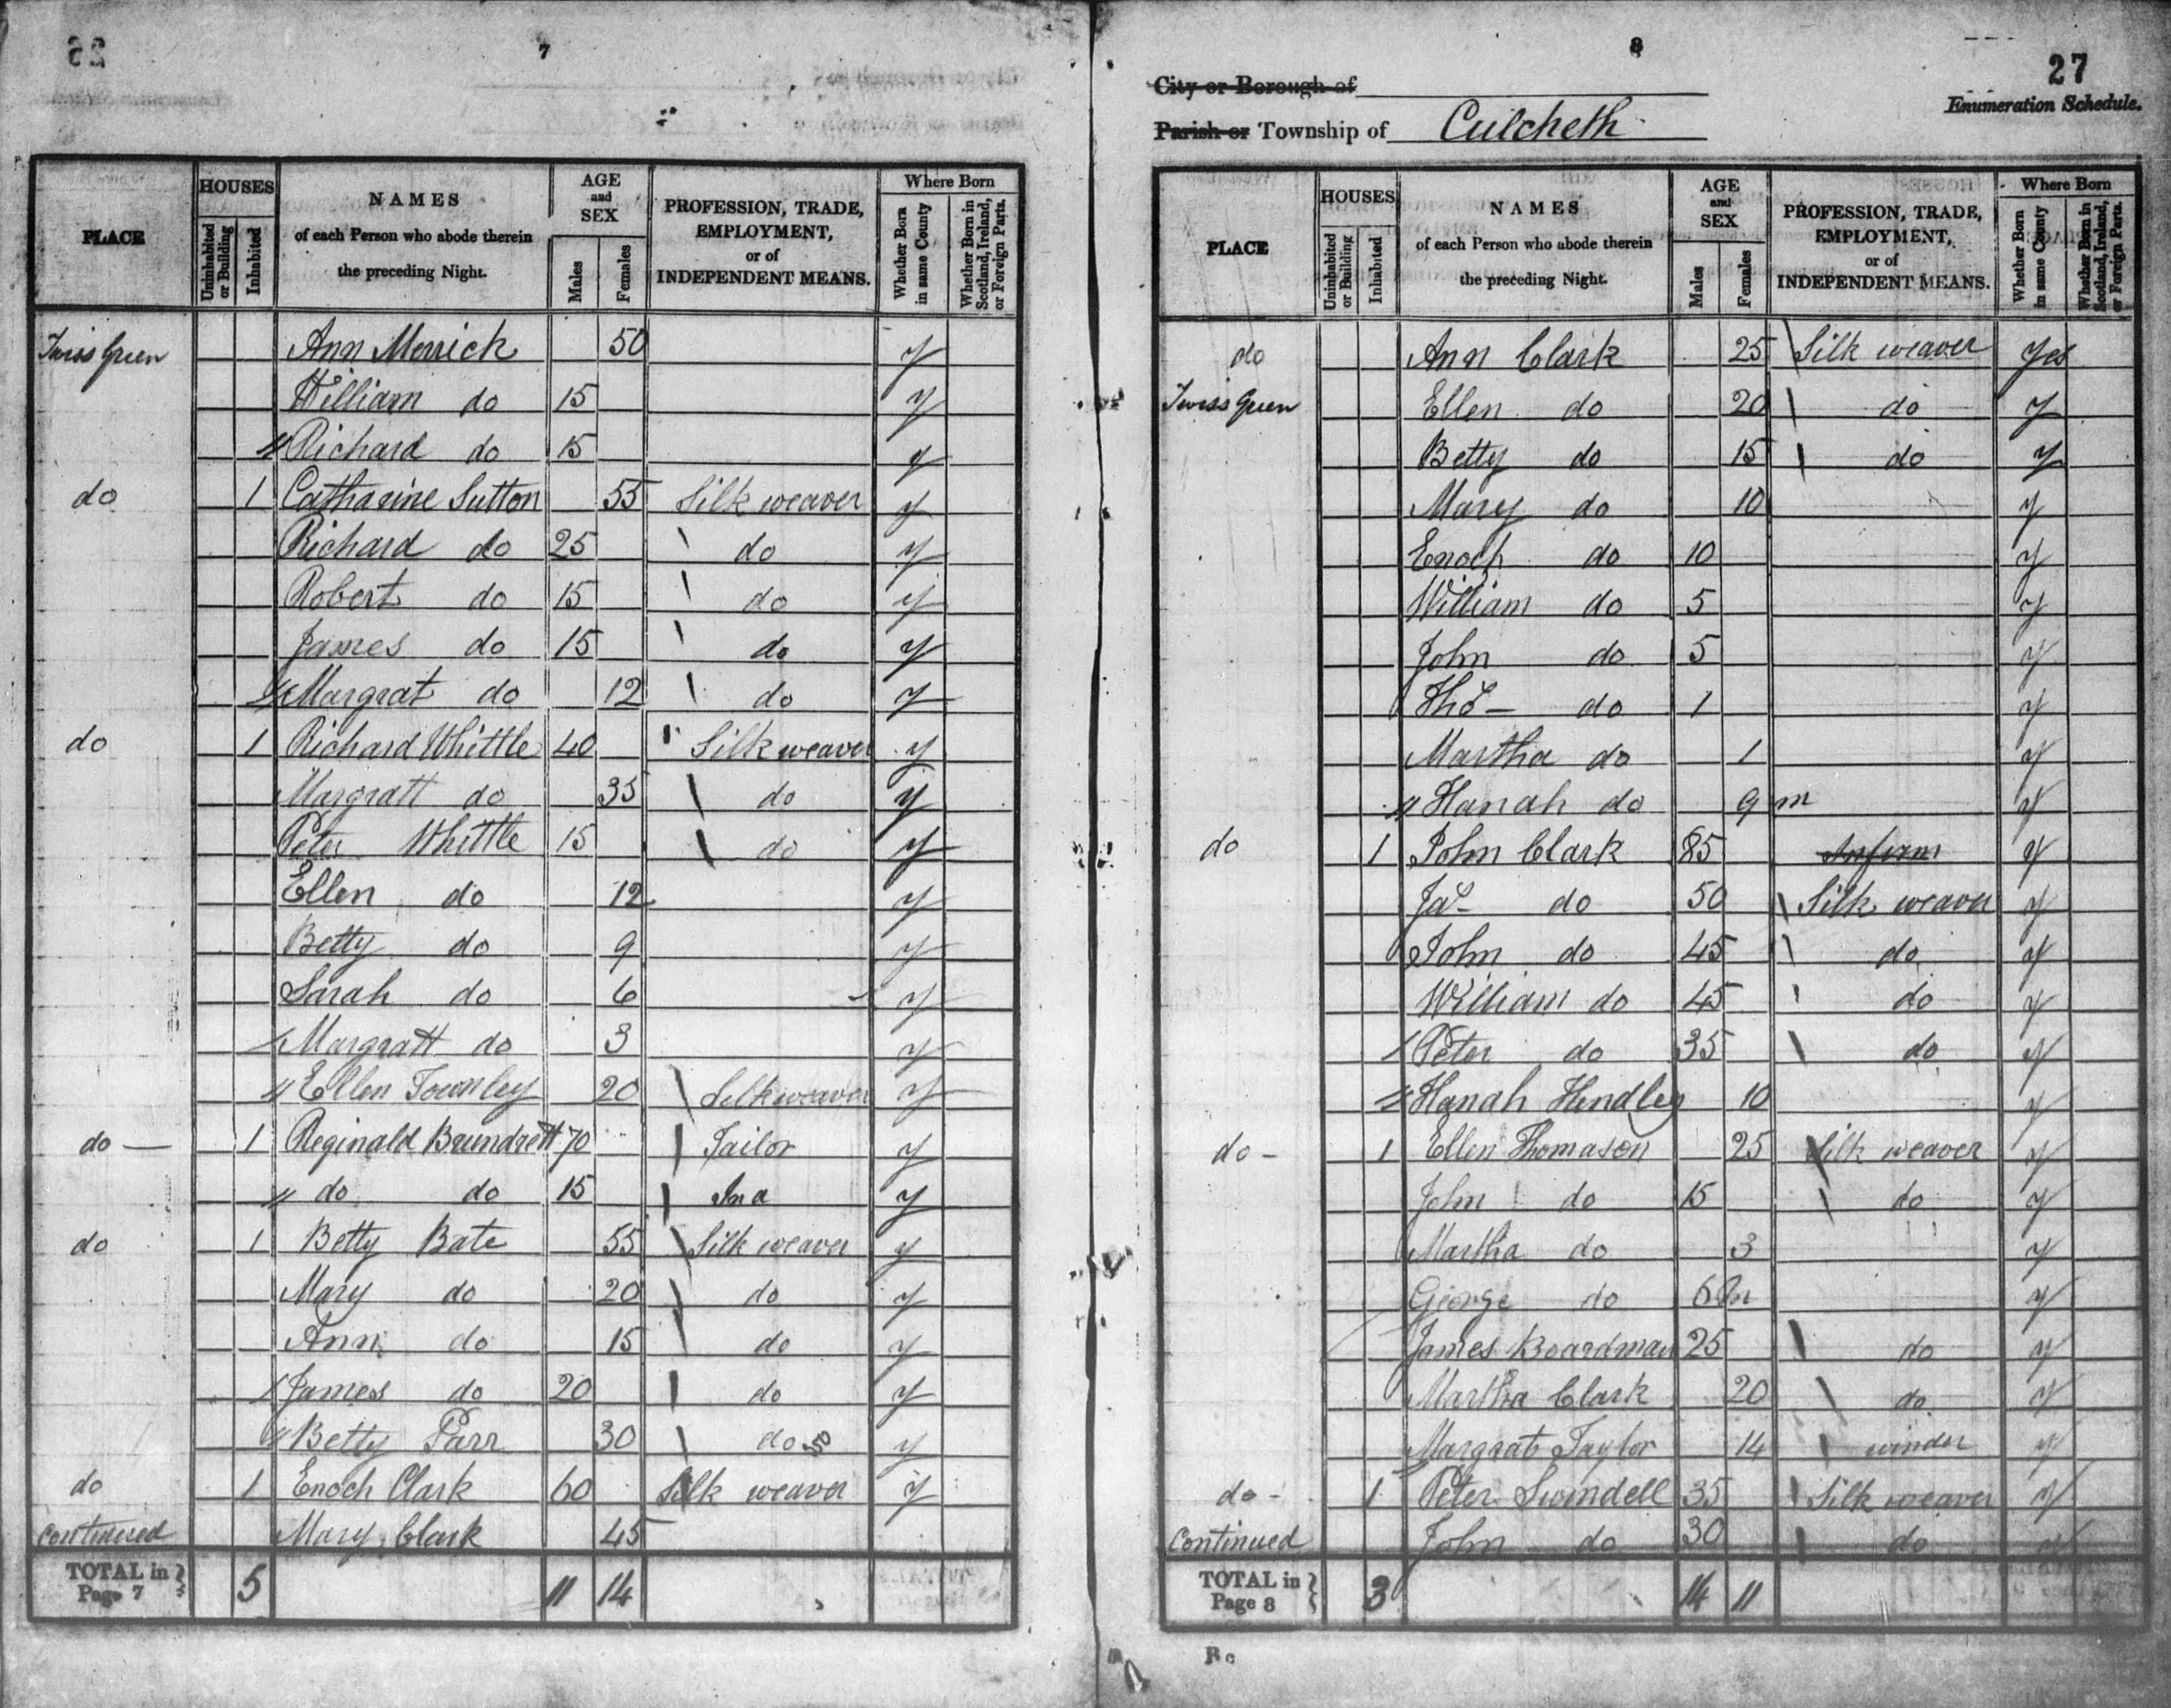 7
PLACE | HOUSES | Uninhabited or Building | Inhabited | NAMES of each Person who abode therein the preceding Night. | AGE and SEX | Males | Females | PROFESSION, TRADE, EMPLOYMENT, or of INDEPENDENT MEANS. | Where Born | Whether Born in same County | Whether Born in Scotland, Ireland, or Foreign Parts.
Twiss Green Ann Merrick 50 y
William do 15 y
// Richard do 15 y
do 1 Catharine Sutton 55 Silk weaver y
Richard do 25 do y
Robert do 15 do y
James do 15 do y
// Margrat do 12 do y
do 1 Richard Whittle 40 Silk weaver y
Margratt do 35 do y
Peter Whittle 15 do y
Ellen do 12 y
Betty do 9 y
Sarah do 6 y
/ Margratt do 3 y
// Ellen Townley 20 Silk weaver y
do — 1 Reginald Brundrett 70 Tailor y
// do do 15 y
do 1 Betty Bate 55 Silk weaver y
Mary do 20 do y
Ann do 15 do y
/ James do 20 do y
// Betty Parr 30 do y
do 1 Enoch Clark 60 Silk weaver y
continued Mary Clark 45
TOTAL in Page 7 5 11 14
8
27
City or Borough of
Enumeration Schedule.
Parish or Township of Culcheth
PLACE | HOUSES | Uninhabited or Building | Inhabited | NAMES of each Person who abode therein the preceding Night. | AGE and SEX | Males | Females | PROFESSION, TRADE, EMPLOYMENT, or of INDEPENDENT MEANS. | Where Born | Whether Born in same County | Whether Born in Scotland, Ireland, or Foreign Parts.
do Ann Clark 25 Silk weaver Yes
Twiss Green Ellen do 20 do y
Betty do 15 do y
Mary do 10 y
Enoch do 10 y
William do 5 y
John do 5 y
Thos do 1 y
Martha do 1 y
// Hanah do 9 m y
do 1 John Clark 85 Infirm y
Jas do 50 Silk weaver y
John do 45 do y
William do 45 do y
/ Peter do 35 do y
// Hanah Hindley 10 y
do - 1 Ellen Thomason 25 Silk weaver y
John do 15 do y
Martha do 3 y
George do 6 m y
James Boardman 25 do y
Martha Clark 20 do y
Margrat Taylor 14 winder y
do - 1 Peter Swindell 35 Silk weaver y
Continued John do 30 do y
TOTAL in Page 8 3 14 11